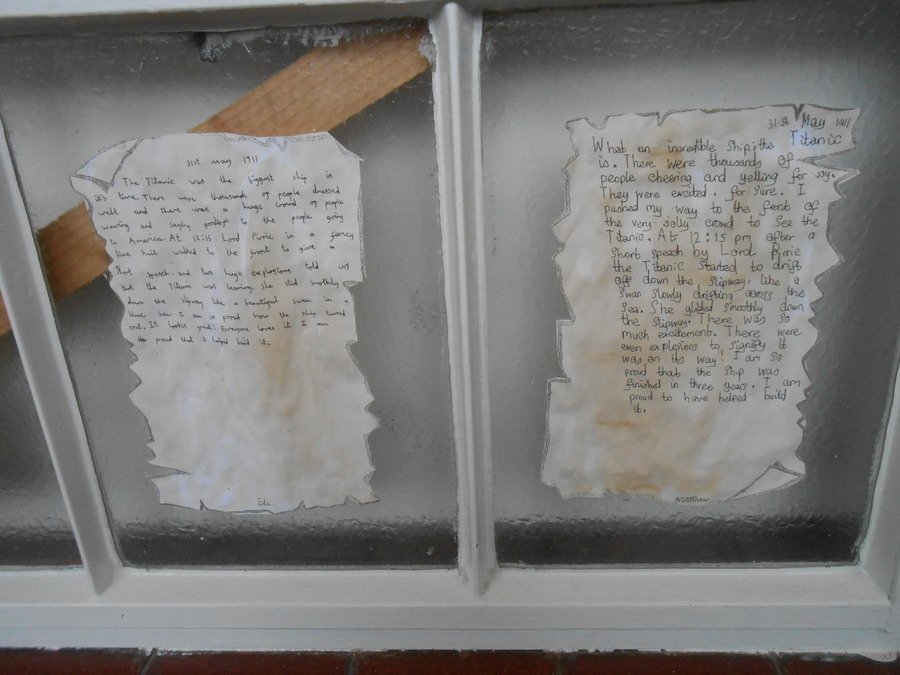 31st May 1911
The Titanic was the biggest ship in
it's time. There were thousands of people dressed
well and there was a huge crowd of people
waving and saying goodbye to the people going
to America. At 12:15 Lord Pirrie in a fancy
blue suit walked to the front to give a
short speech and two huge explosions told us
that the Titanic was leaving. She slid smoothly
down the slipway like a beautiful swan in a
blue sea. I am so proud how the ship turned
out. It looks great! Everyone loves it I am
so proud that I helped build it.
Eli
31st May 1911
What an incredible ship; the Titanic
is. There were thousands of
people cheering and yelling for joy.
They were excited, for sure. I
pushed my way to the front of
the very jolly crowd to see the
Titanic. At 12:15 pm after a
short speech by Lord Pirrie
the Titanic started to drift
off down the slipway, like a
swan slowly drifting across the
sea. She glided smoothly down
the slipway. There was so
much excitement. There were
even explosions to signify it
was on its way! I am so
proud that the ship was
finished in three years. I am
proud to have helped build
it.
Matthew